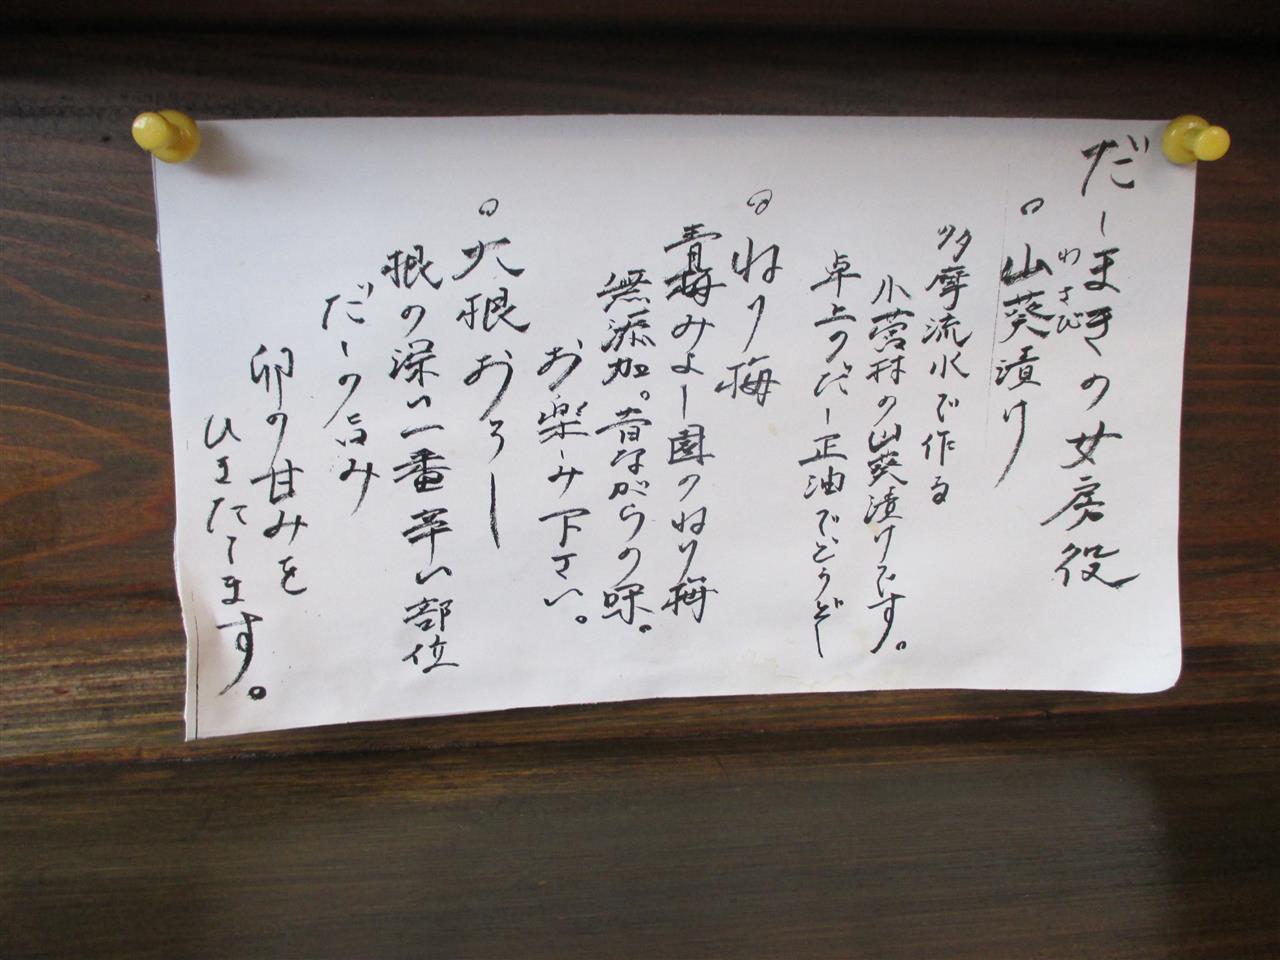 だしまきの女房役
。山葵漬け
わさび
多摩流水で作る
小菅村の山葵漬けです。
卓上のだし正油でどうぞ
。ねり梅
青梅みよし園のねり梅
無添加。昔ながらの味。
お楽しみ下さい。
。大根おろし
根の深い一番辛い部位
だしの旨み
卵の甘みを
ひきたてます。